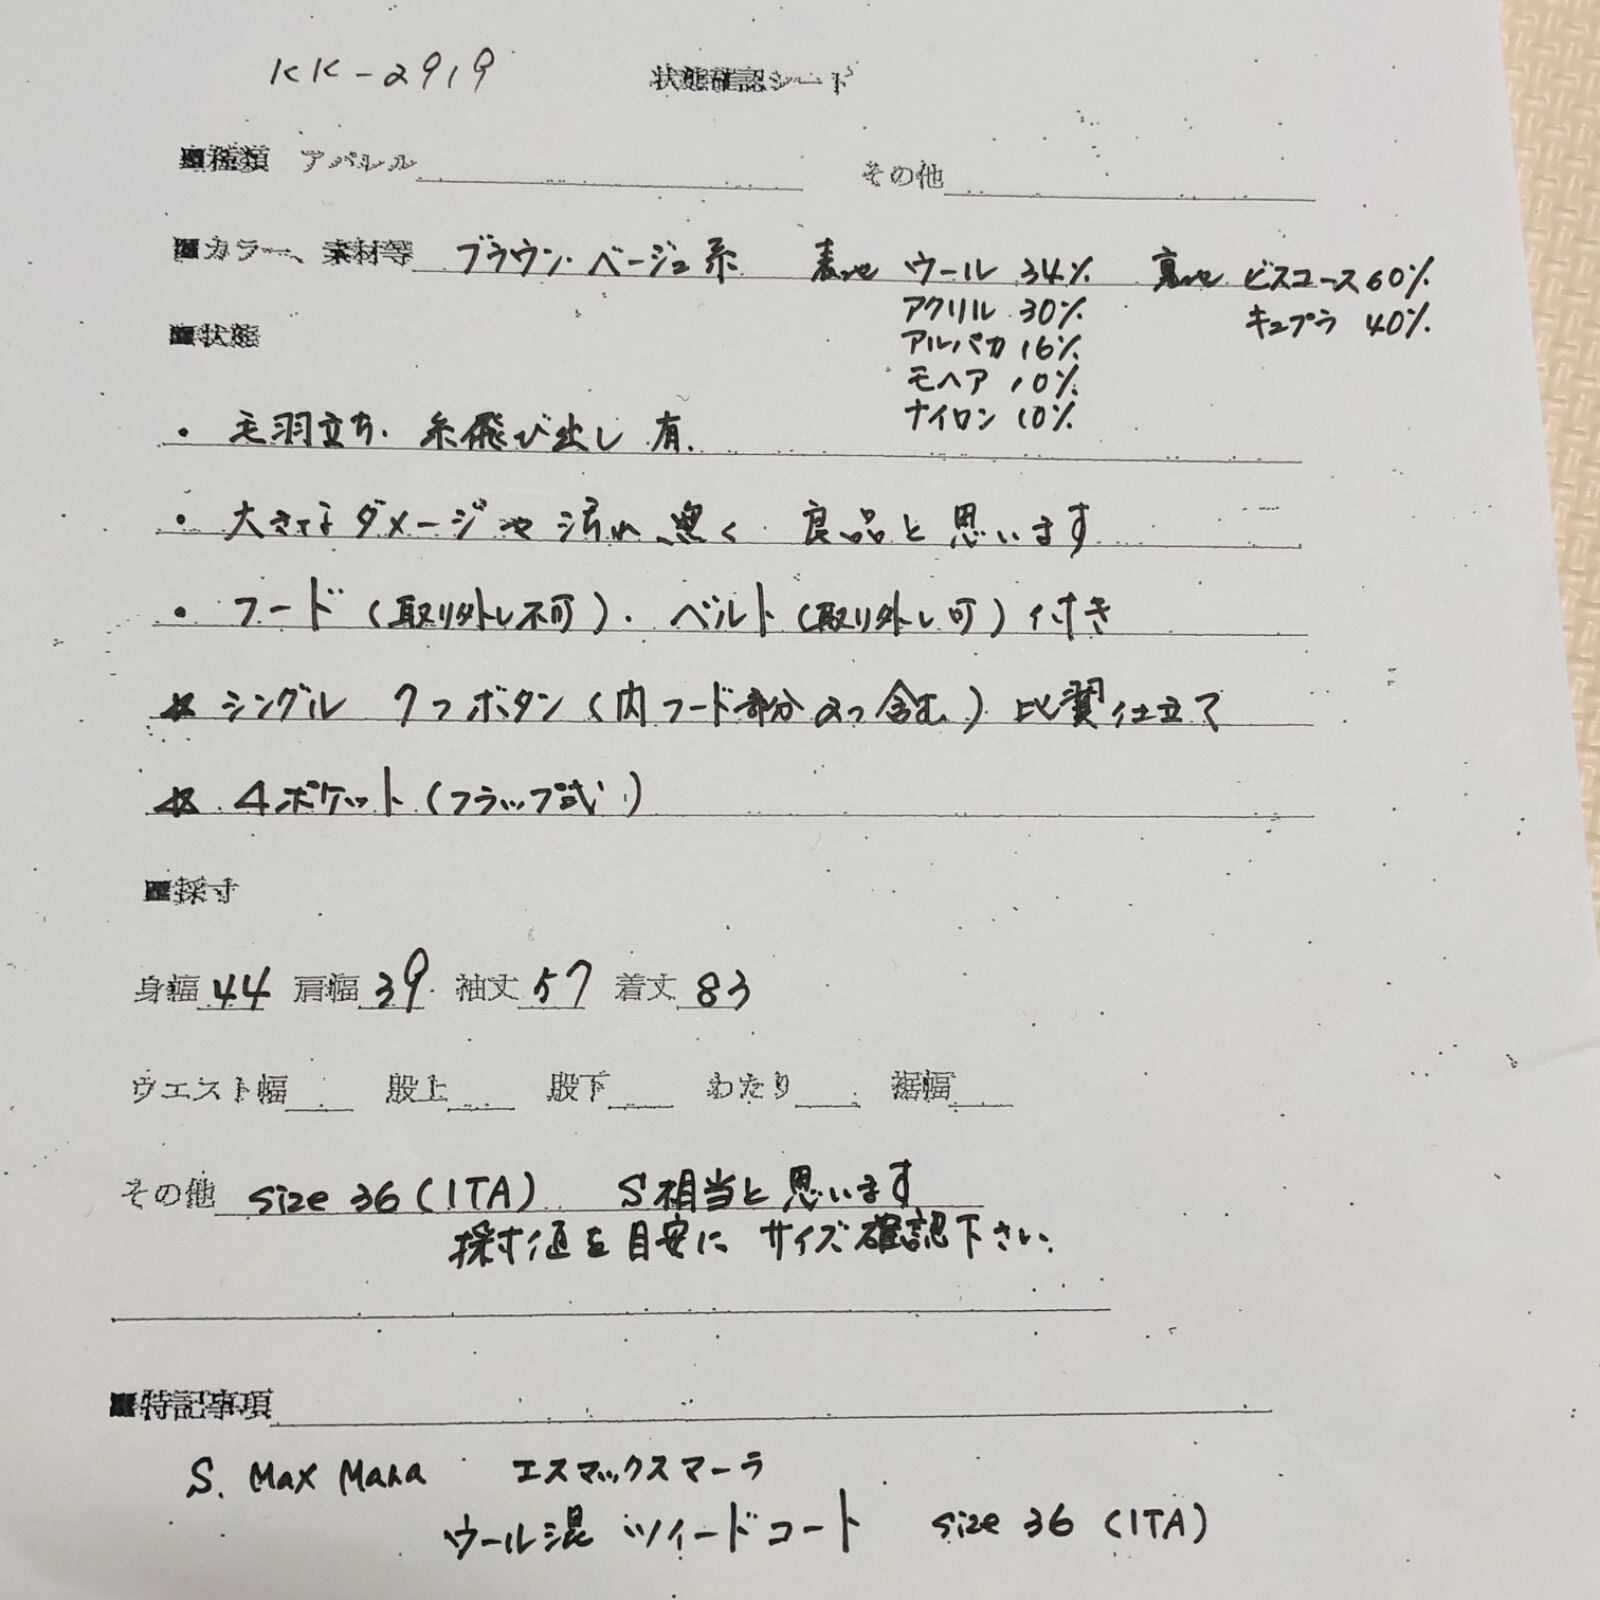 KK-2919 状態確認シート
■種類 アパレル その他
■カラー、素材等 ブラウン・ベージュ系 表地 ウール 34% 裏地 ビスコース60%
アクリル 30% キュプラ 40%
アルパカ 16%
モヘア 10%
ナイロン 10%
■状態
・毛羽立ち・糸飛び出し 有
・大きなダメージや汚れ無く 良品と思います
・フード(取り外し不可)・ベルト(取り外し可)付き
☆シングル 7つボタン(内フード部分2つ含む)比翼仕立て
☆4ポケット(フラップ式)
■採寸
身幅44 肩幅39 袖丈57 着丈83
ウエスト幅 股上 股下 わたり 裾幅
その他 size 36(ITA) S相当と思います
採寸値を目安にサイズ確認下さい.
■特記事項
S. Max Mara エスマックスマーラ
ウール混 ツィードコート size 36 (ITA)